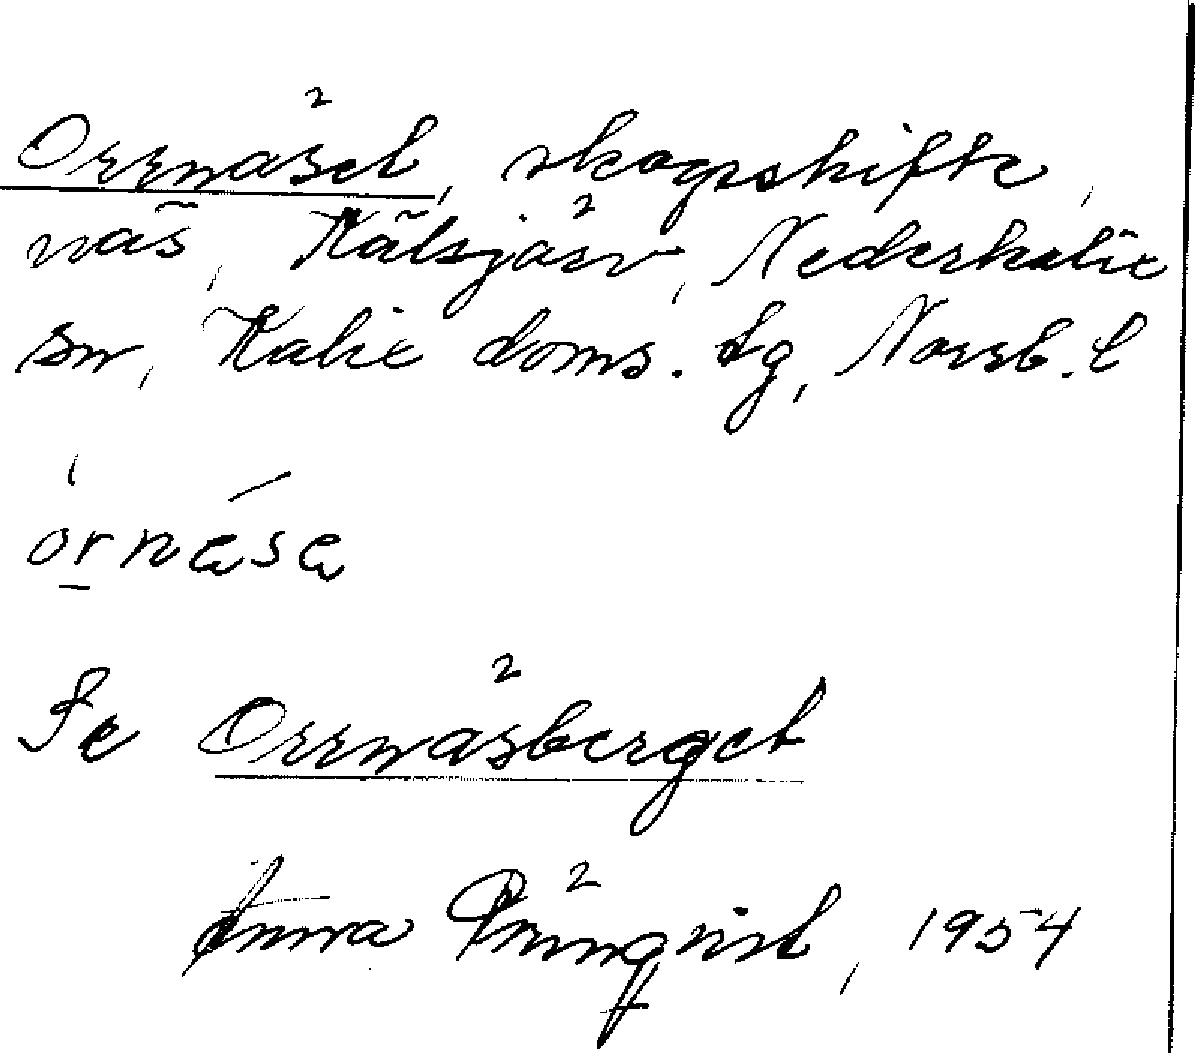 Orrnäset, skogsskifte,
näs, Kälsjärv, Nederkalix
sn, Kalix doms. lg, Norrb. l
órnǽsę
Se Orrnäsberget
Anna 1954